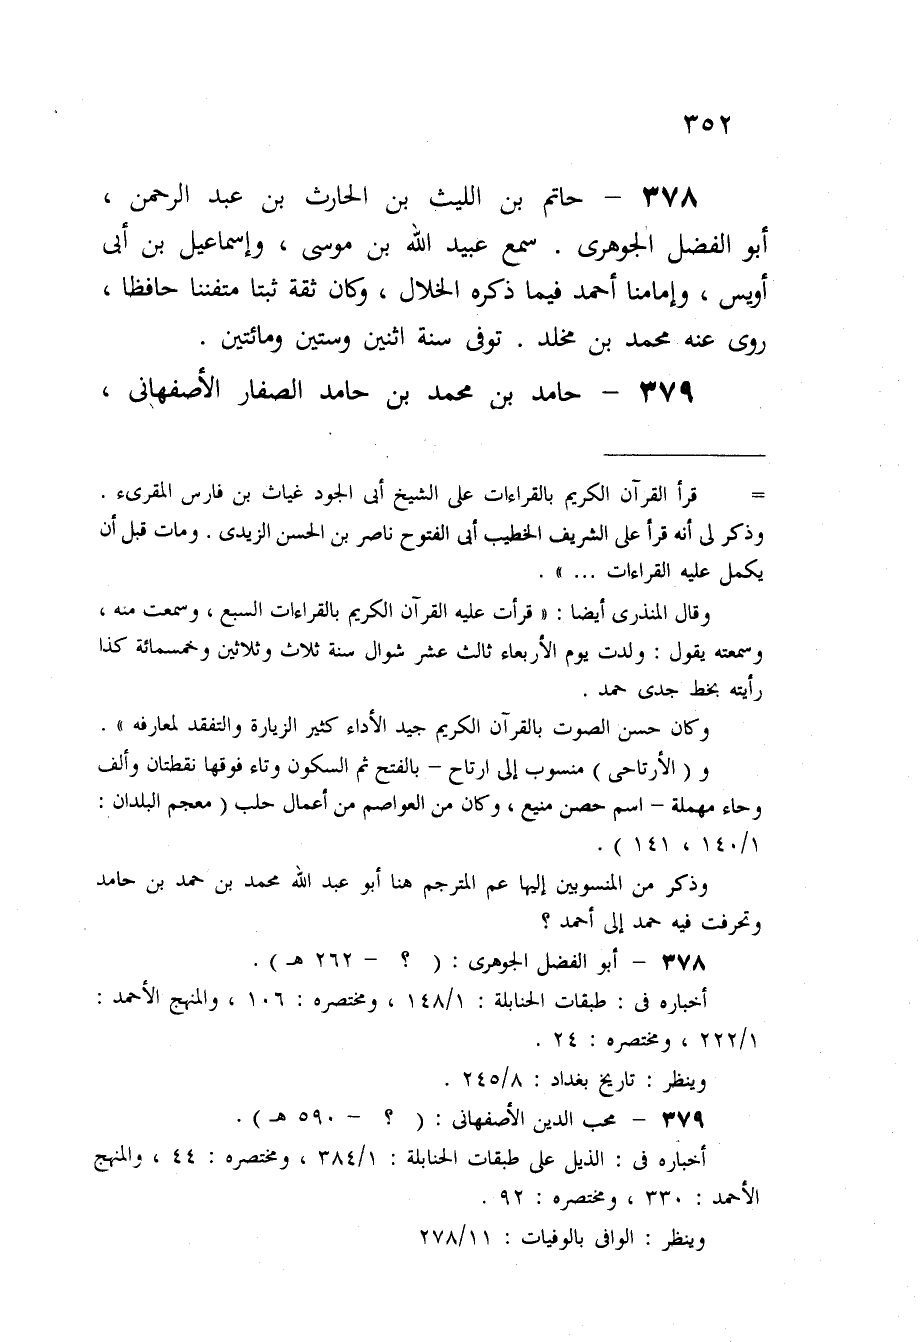 ٣٥٢
٣٧٨ – حاتم بن الليث بن الحارث بن عبد الرحمن ،
أبو الفضل الجوهرى . سمع عبيد الله بن موسى ، وإسماعيل بن أبى
أويس ، وإمامنا أحمد فيما ذكره الخلال ، وكان ثقة ثبتا متفننا حافظا ،
روى عنه محمد بن مخلد . توفى سنة اثنين وستين ومائتين .
٣٧٩ – حامد بن محمد بن حامد الصفار الأصفهانى ،
= قرأ القرآن الكريم بالقراءات على الشيخ أبى الجود غياث بن فارس المقرىء .
وذكر لى أنه قرأ على الشريف الخطيب أبى الفتوح ناصر بن الحسن الزيدى . ومات قبل أن
يكمل عليه القراءات ... » .
وقال المنذرى أيضا : « قرأت عليه القرآن الكريم بالقراءات السبع ، وسمعت منه ،
وسمعته يقول : ولدت يوم الأربعاء ثالث عشر شوال سنة ثلاث وثلاثين وخمسمائة كذا
رأيته بخط جدى حمد .
وكان حسن الصوت بالقرآن الكريم جيد الأداء كثير الزيارة والتفقد لمعارفه » .
و ( الأرتاحى ) منسوب إلى ارتاح – بالفتح ثم السكون وتاء فوقها نقطتان وألف
وحاء مهملة – اسم حصن منيع ، وكان من العواصم من أعمال حلب ( معجم البلدان :
١/١٤٠ ، ١٤١ ) .
وذكر من المنسوبين إليها عم المترجم هنا أبو عبد الله محمد بن حمد بن حامد
وتحرفت فيه حمد إلى أحمد ؟
٣٧٨ – أبو الفضل الجوهرى : ( ؟ – ٢٦٢ هـ ) .
أخباره فى : طبقات الحنابلة : ١/١٤٨ ، ومختصره : ١٠٦ ، والمنهج الأحمد :
١/٢٢٢ ، ومختصره : ٢٤ .
وينظر : تاريخ بغداد : ٨/٢٤٥ .
٣٧٩ – محب الدين الأصفهانى : ( ؟ – ٥٩٠ هـ ) .
أخباره فى : الذيل على طبقات الحنابلة : ١/٣٨٤ ، ومختصره : ٤٤ ، والمنهج
الأحمد : ٣٣٠ ، ومختصره : ٩٢ .
وينظر : الوافى بالوفيات : ١١/٢٧٨